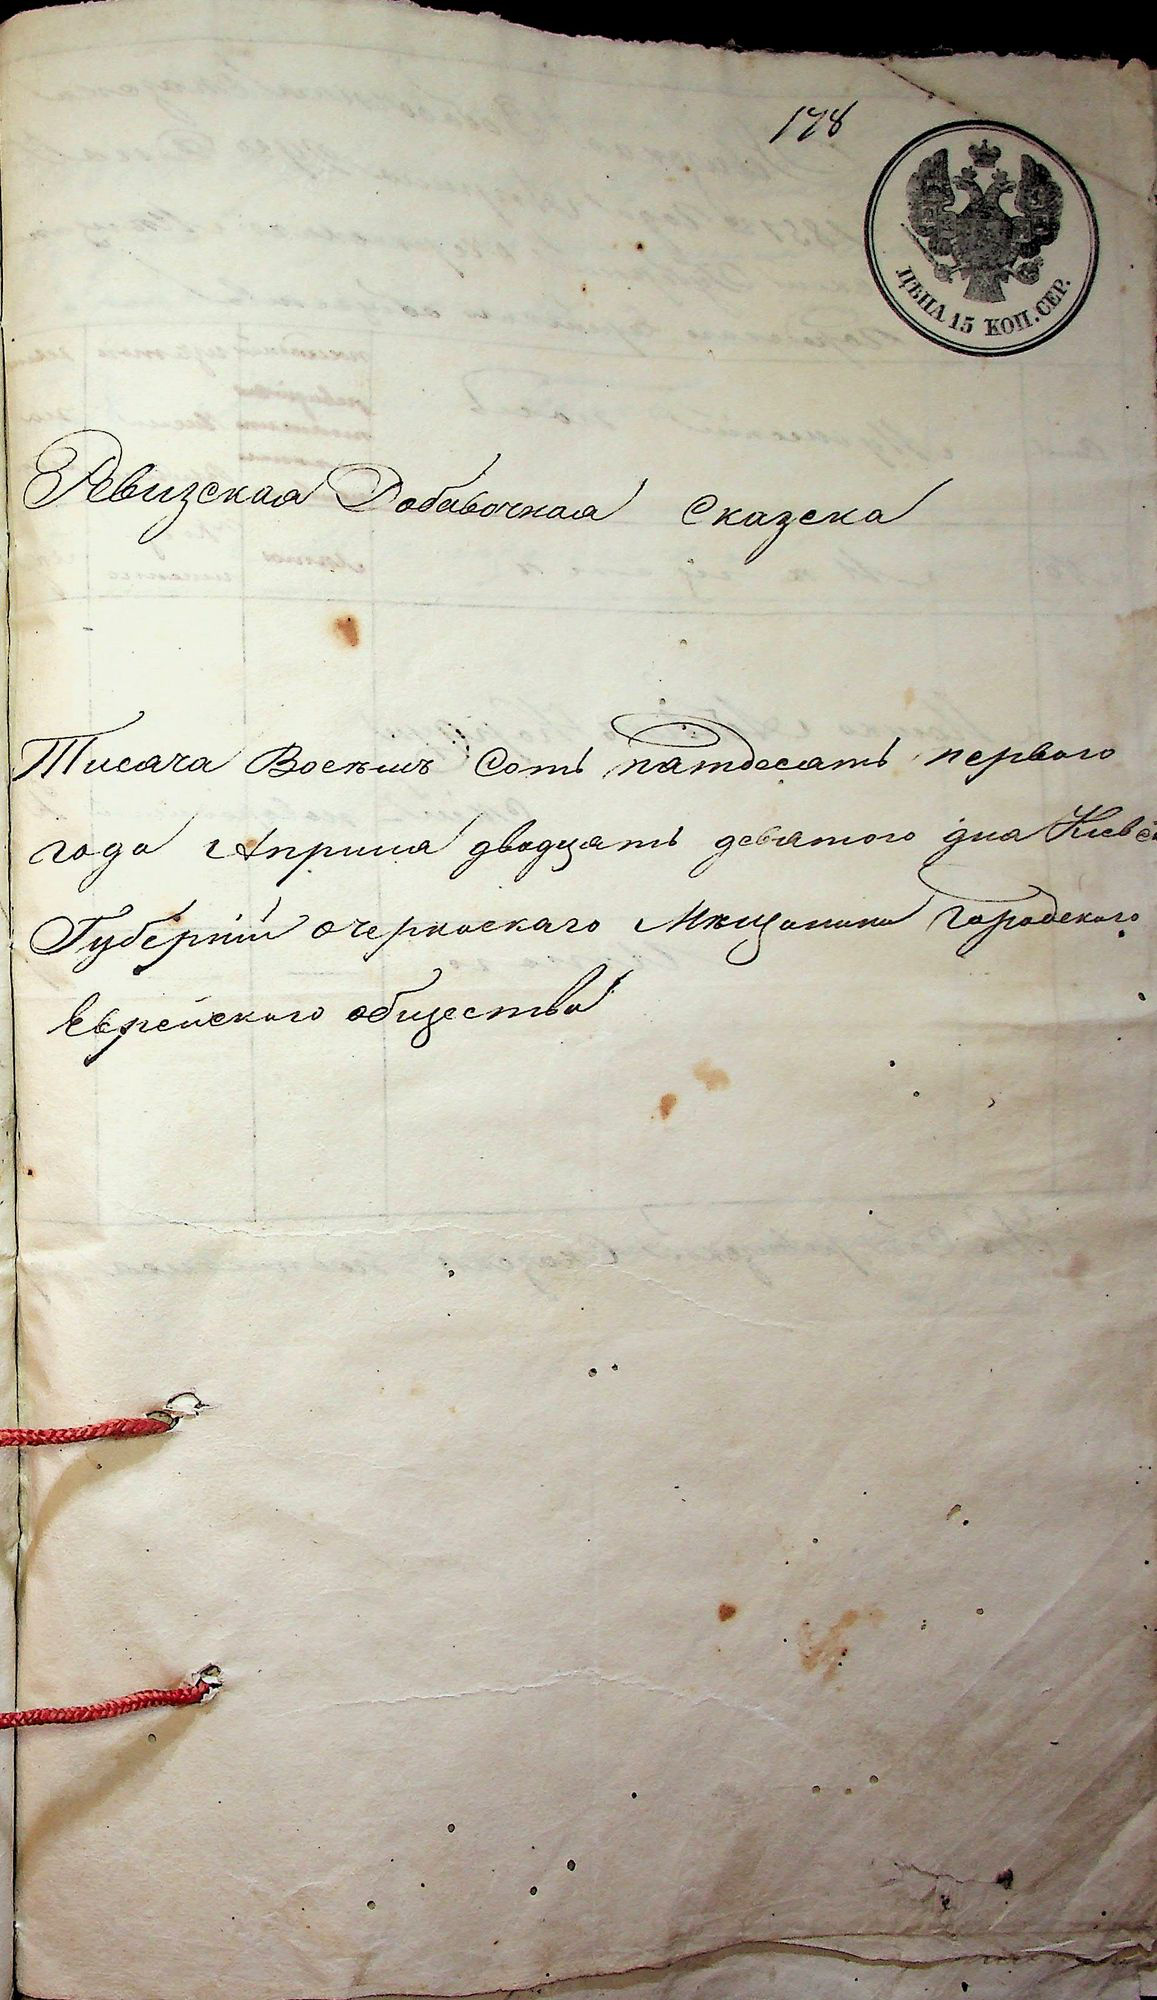 178
ЦѢНА 15 КОП. СЕР.
Ревизская Добавочная Сказска
Тисяча Восѣмъ Сотъ пятдесятъ первого
года Априля двадцять девятого дня Киевс
Губернiи Очеркаскаго Мѣщанина Городского
Еврейского общества